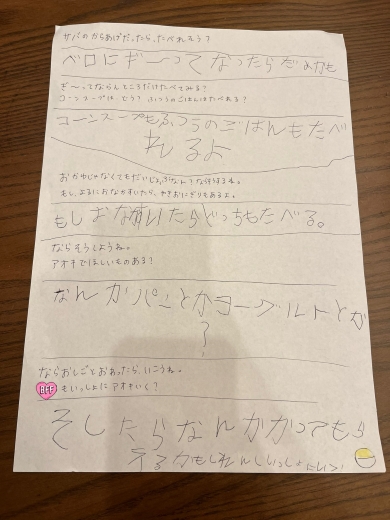 サバのからあげだったら、たべれそう？
ベロにギーってなったらだめかも
ぎーってならんところだけたべてみる？
コーンスープは、どう？ふつうのごはんはたべれる？
コーンスープもふつうのごはんもたべ
れるよ
おかゆじゃなくてもだいじょぶなん？
もし、よるにおなかすいたら、やきおにぎりもあるよ。
もしおな すいたらどっちもたべる。
ならそうしようね。
アオキでほしいものある？
なんかパンとかヨーグルトとか
？
ならおしごとおわったら、いこうね。
BFF もいっしょにアオキいく？
そしたらなんかかってもら
えるかもしれんしいっしょにいく